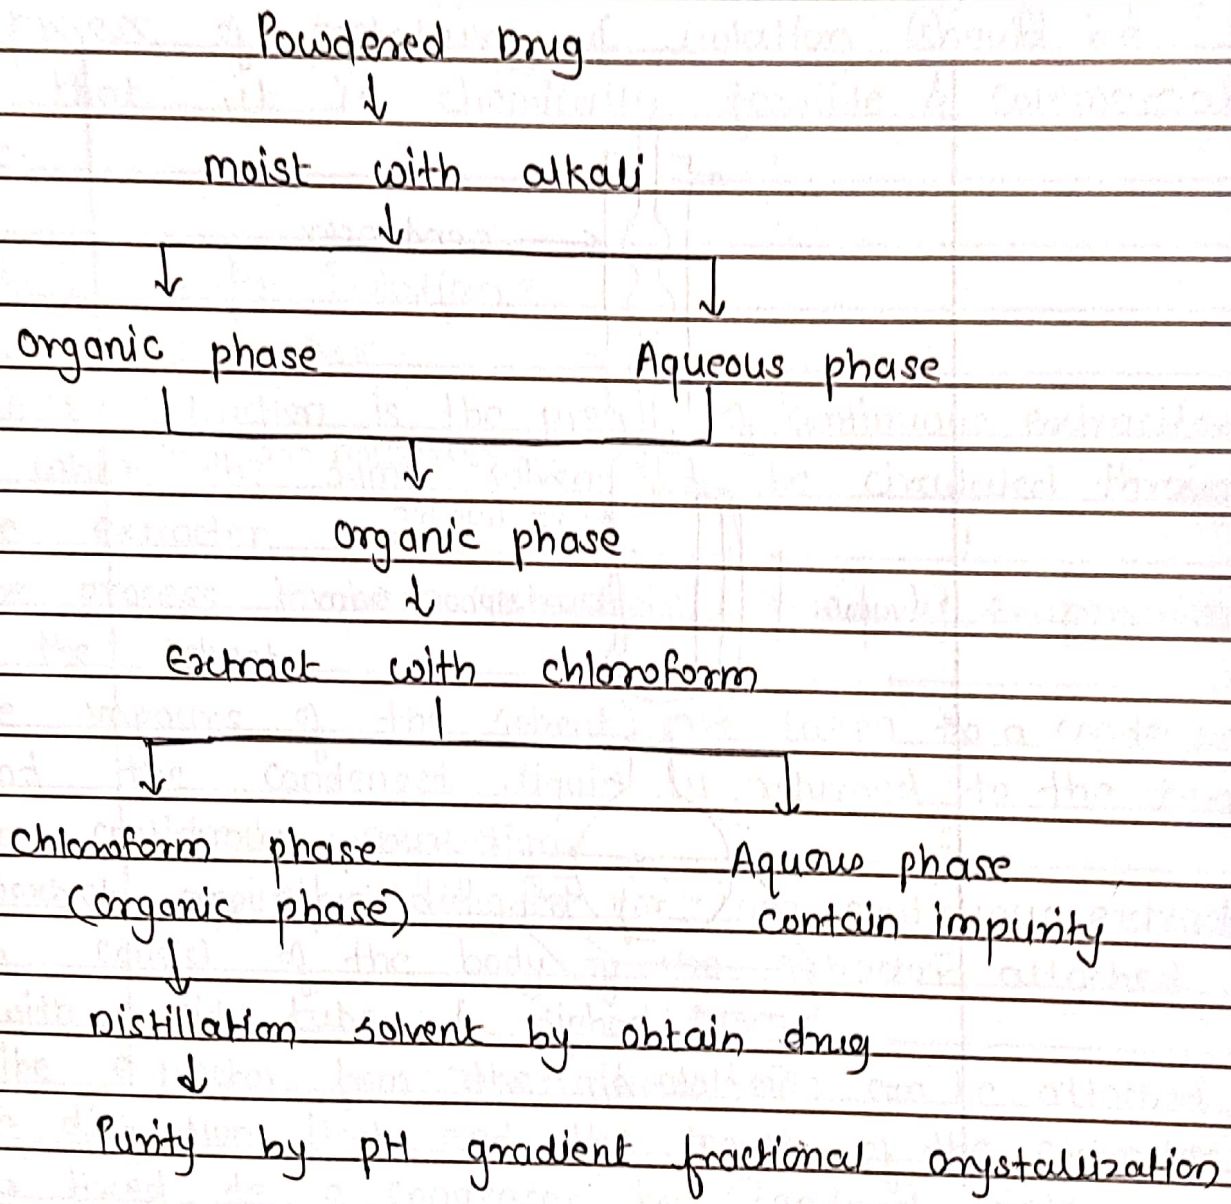 Powdered Drug
moist with alkali
organic phase Aqueous phase
organic phase
Extract with chloroform
Chloroform phase Aquous phase
(organic phase) contain impurity
Distillation solvent by obtain drug
Purity by pH gradient fractional crystallization